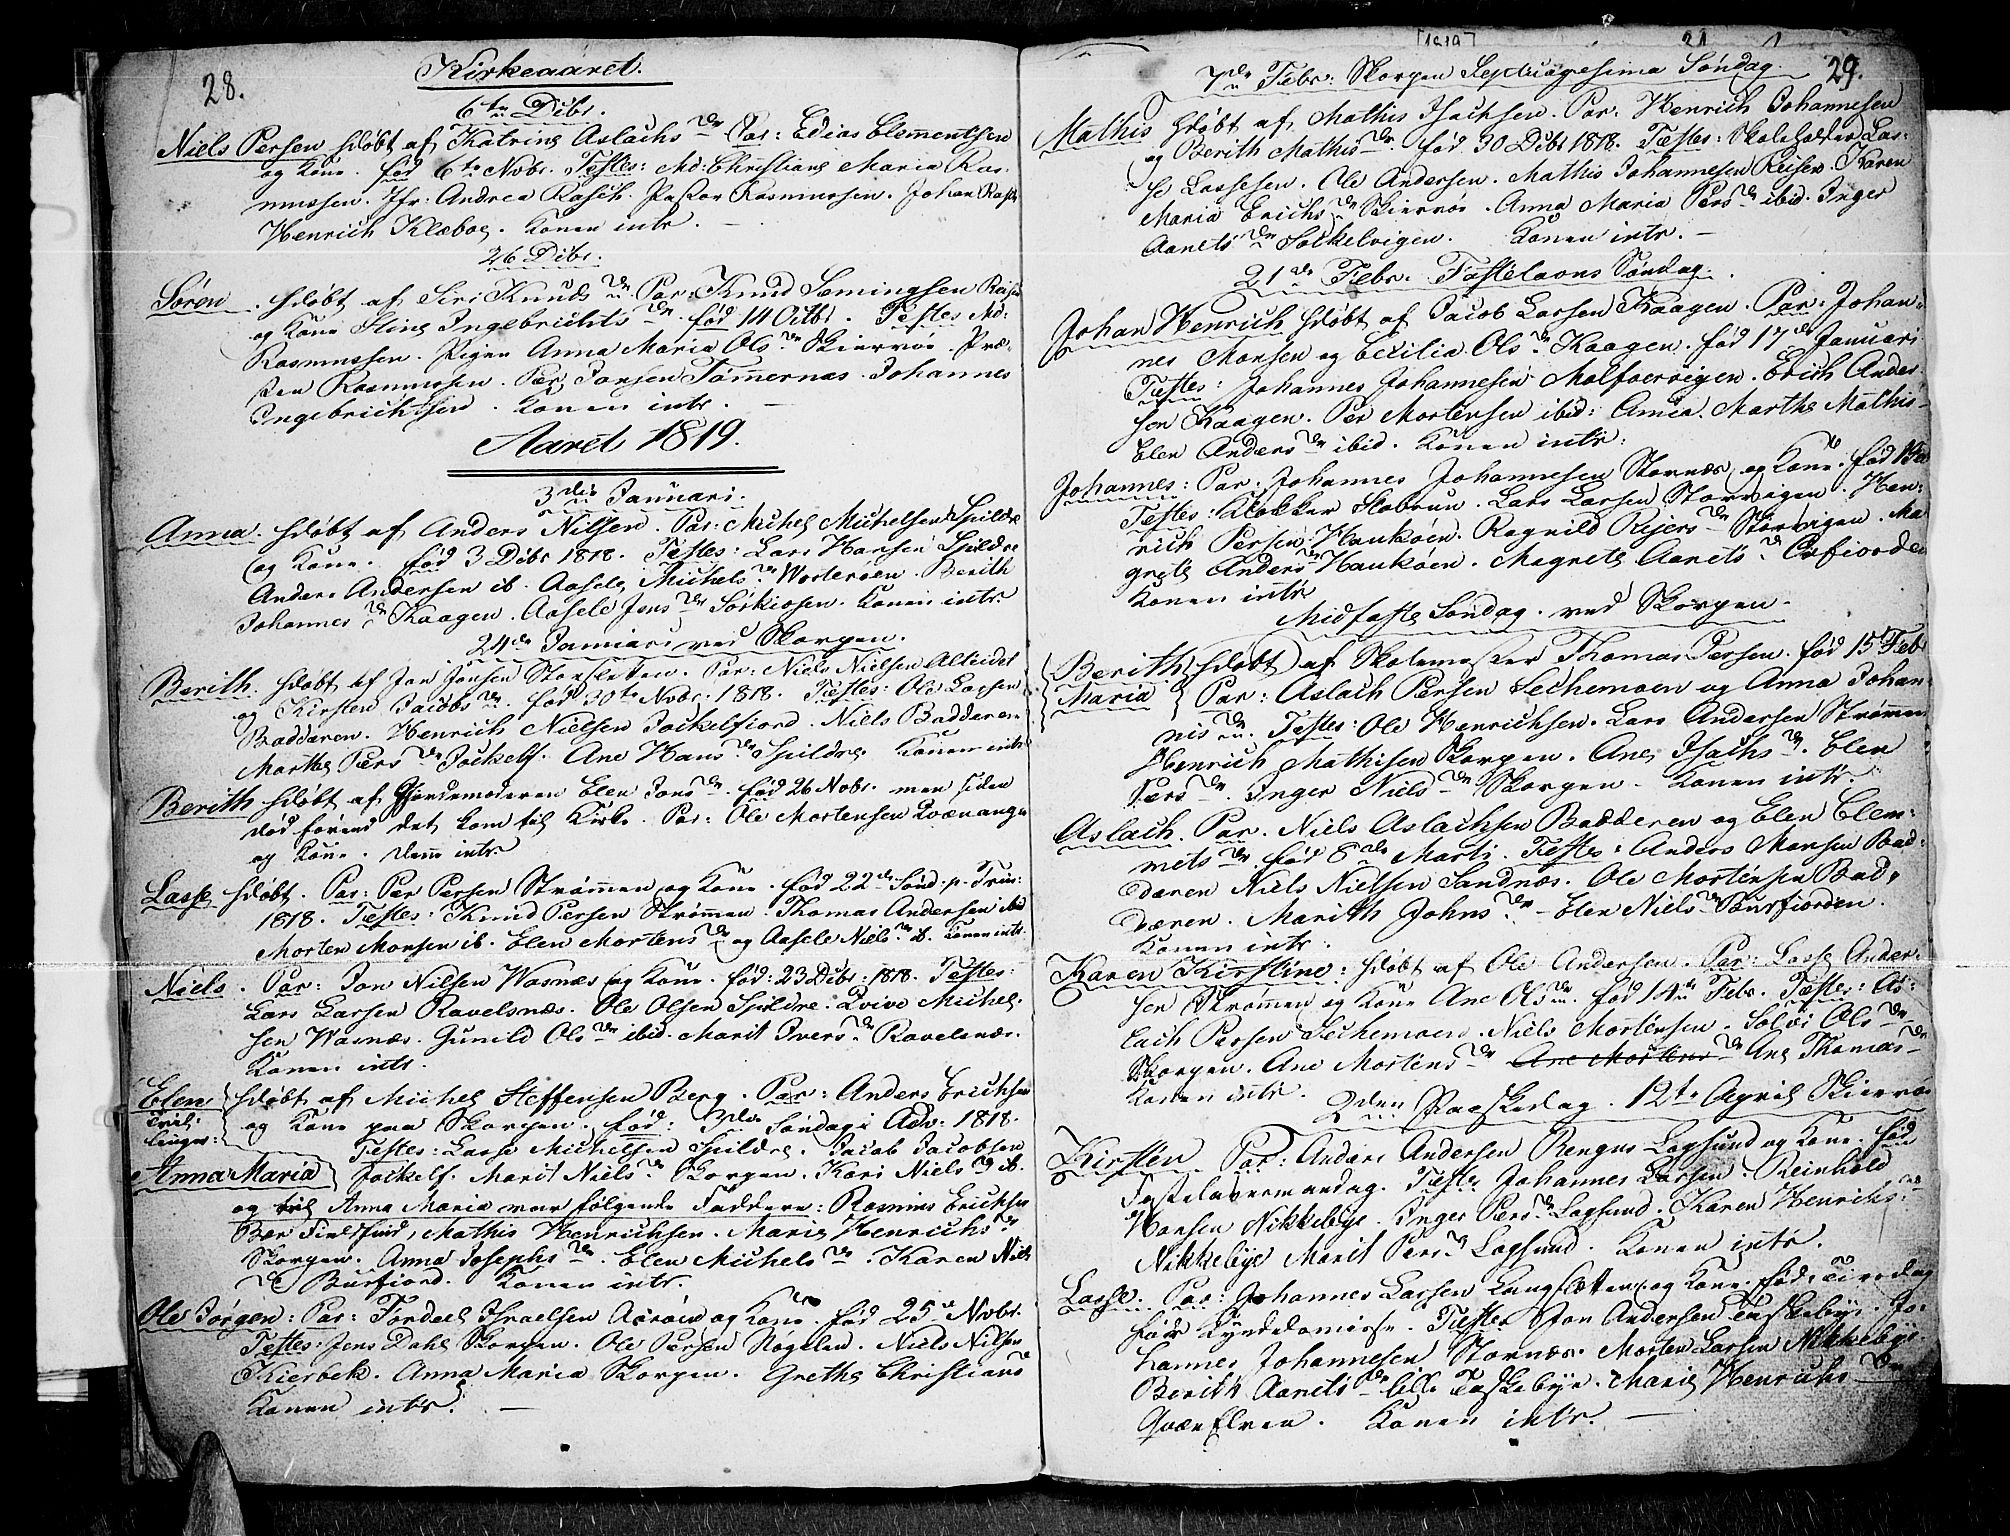 28.
Kirkeaaret.
6te Dibr.
Niels Persen hdøbt af Katrine Aslachs de Par: Edias Clementsen
og Kone. fød 6te Novbr. Testes: Md: Christiane Maria Ras-
mussen. Jfr: Andrea Rasch. Pastor Rasmussen. Johan Rasch
Henrich Klæboe. Konen intr.
26 Dibr.
Søren. hdøbt af Siri Knuds de Par. Knud Semingsen
og Kone Stine Ingebrichts de. fød 14 Octbr. Testes Md:
Rasmussen. Pigen Anna Maria Ols de Skiervøe. Præ-
sten Rasmussen. Per Jonsen Tømmernæs. Johannes
Ingebrichtsen. Konen intr.
Aaret 1819.
3die Januari.
Anna. hdøbt af Anders Nilsen. Par: Michel Michelsen Spildre
og Kone. fød 3 Dibr 1818. Testes: Lars Hansen Spildre
Anders Andersen ib. Aasele Michels de Worterøen. Berith
Johannes de Kaagen. Aasele Jens de Sørkiosen. Konen intr.
24de Januari ved Skorpen.
Berith. hdøbt af Jon Jonsen Storsletten. Par: Niels Nielsen Alteidet
og Kirsten Jacobs de. fød 30te Novbr. 1818. Testes: Ole Larsen
Baddæren. Henrich Nielsen Jockelfiord. Niels Baddæren.
Marthe Pers de Jockelf. Ane Hans de Spildre. Konen intr
Berith hdøbt af Giordemoderen Elen Jons de. fød 26 Novbr. men siden
død førend det kom til Kirke. Par: Ole Mortensen Qvænangen
og Kone. denne intr.
Lasse hdøbt. Par: Per Persen Strømmen og Kone. fød 22de Sønd. p. Trin:
1818. Testes: Knud Persen Strømmen. Thomas Andersen ibid
Morten Monsen ib. Elen Mortens de og Aasele Niels de ib. Konen intr.
Niels. Par: Jon Nilsen Wasnæs og Kone. fød: 23 Dibr: 1818. Testes:
Lars Larsen Ravelsnæs. Ole Olsen Spildre. Qvive Michel-
sen Wasnæs. Gunild Ols de ibid. Marit Ivers de Ravelsnæs.
Konen intr.
Elen hdøbt af Michel Steffensen Berg. Par: Anders Erichsen
tvil- og Kone paa Skorpen. fød: 3die Søndag i Adv: 1818.
linger: Testes: Lasse Michelsen Spildre. Jacob Jacobsen
Anna Maria Jockelf. Marit Niels de Skorpen. Kari Niels de ib.
og til Anna Maria var følgende Faddere: Rasmus Erichsen
Mathis Henrichsen. Marie Henrichs de
Skorpen. Anna Josephs de. Elen Michels de. Karen Niels
de Burfiord. Konen intr.
Ole Jørgen: Par: Fordeel Israelsen Aarøe og Kone. fød 25de Novbr.
Testes: Jens Dahl Skorpen. Ole Persen Nøgelen. Niels Nilsen
Kierbek. Anna Maria Skorpen. Grethe Christians de
Konen intr.
[1819]
29.
7de Febr: Skorpen Septuagesima Søndag.
Mathis hdøbt af Mathis Isachsen. Par. Henrich Johannesen
og Berith Mathis de. fød 30 Dibr 1818. Testes: Skoleholder Las-
se Lassesen. Ole Andersen. Mathis Johannesen Reisen. Karen
Maria Erichs de Skiervøe. Anna Maria Pers de ibid. Inger
Aarets de Jockelvigen. Konen intr.
21de Febr. Fastelavns Søndag.
Johan Henrich hdøbt af Jacob Larsen Kaagen. Par: Johan-
nes Monsen og Cecilia Ols de Kaagen. fød 17de Januari
Testes: Johannes Johannesen Molfoervigen. Erich Ander-
sen Kaagen. Per Mortensen ibid: Marthe Mathis-
Elen Anders de ibid. Konen intr:
Johannes: Par. Johannes Johannesen Stornæs og Kone. fød
Testes: Klokker Hobrun. Lars Larsen Storvigen. Hen-
rich Persen Haukøen. Ragnild Reiers de Storvigen. Ma-
grete Anders de Haukøen. Magrete Aarets de Oxfiorden
Konen intr
Midfaste Søndag. ved Skorpen.
Berith hdøbt af Skolemester Thomas Persen. fød 15 Febr
Maria Par: Aslach Persen Sechemoen og Anna Johan-
nis de. Testes: Ole Henrichsen. Lars Andersen Strømmen
Henrich Mathisen Skorpen. Ane Isachs de. Elen
Pers de. Inger Niels de Skorpen. Konen intr.
Aslach. Par. Niels Aslachsen Badderen og Elen Clem-
mets de. fød 8de Marti. Testes: Anders Monsen Bad-
dæren Niels Nielsen Sandnæs. Ole Mortensen Bad-
dæren. Marith Johns de. Elen Niels de Buurfiorden.
Konen intr.
Karen Kirstine: hdøbt af Ole Andersen. Par: Lasse Ander-
sen Strømmen og Kone Ane Ols de. fød 14de Febr. Testes: As-
lach Persen Sechemoen. Niels Mortensen. Solvi Ols de
Skorpen. Ane Mortens de Ane Mortens de Ane Thomas de
Konen intr.
2den Paaskedag. 12te April Skiervøe
Kirsten Par: Anders Andersen Rengus Lagsund og Kone. fød
Fastelavnsmandag. Testes Johannes Larsen. Reinhold
Hansen Nikkebye. Inger Pers de Lagsund. Karen Henrichs de
Nikkebye Marit Pers de Lagsund. Konen intr.
Lasse. Par: Johannes Larsen Langsletten og Kone. fød: Tirsdag
før Kyndelsmisse. Testes Jon Andersen Taskebye. Jo-
hannes Johannesen Stornæs. Morten Larsen Nikkebye.
Berith Aarets de lille Taskebye. Marie Henrichs de
Qvænelven. Konen intr.